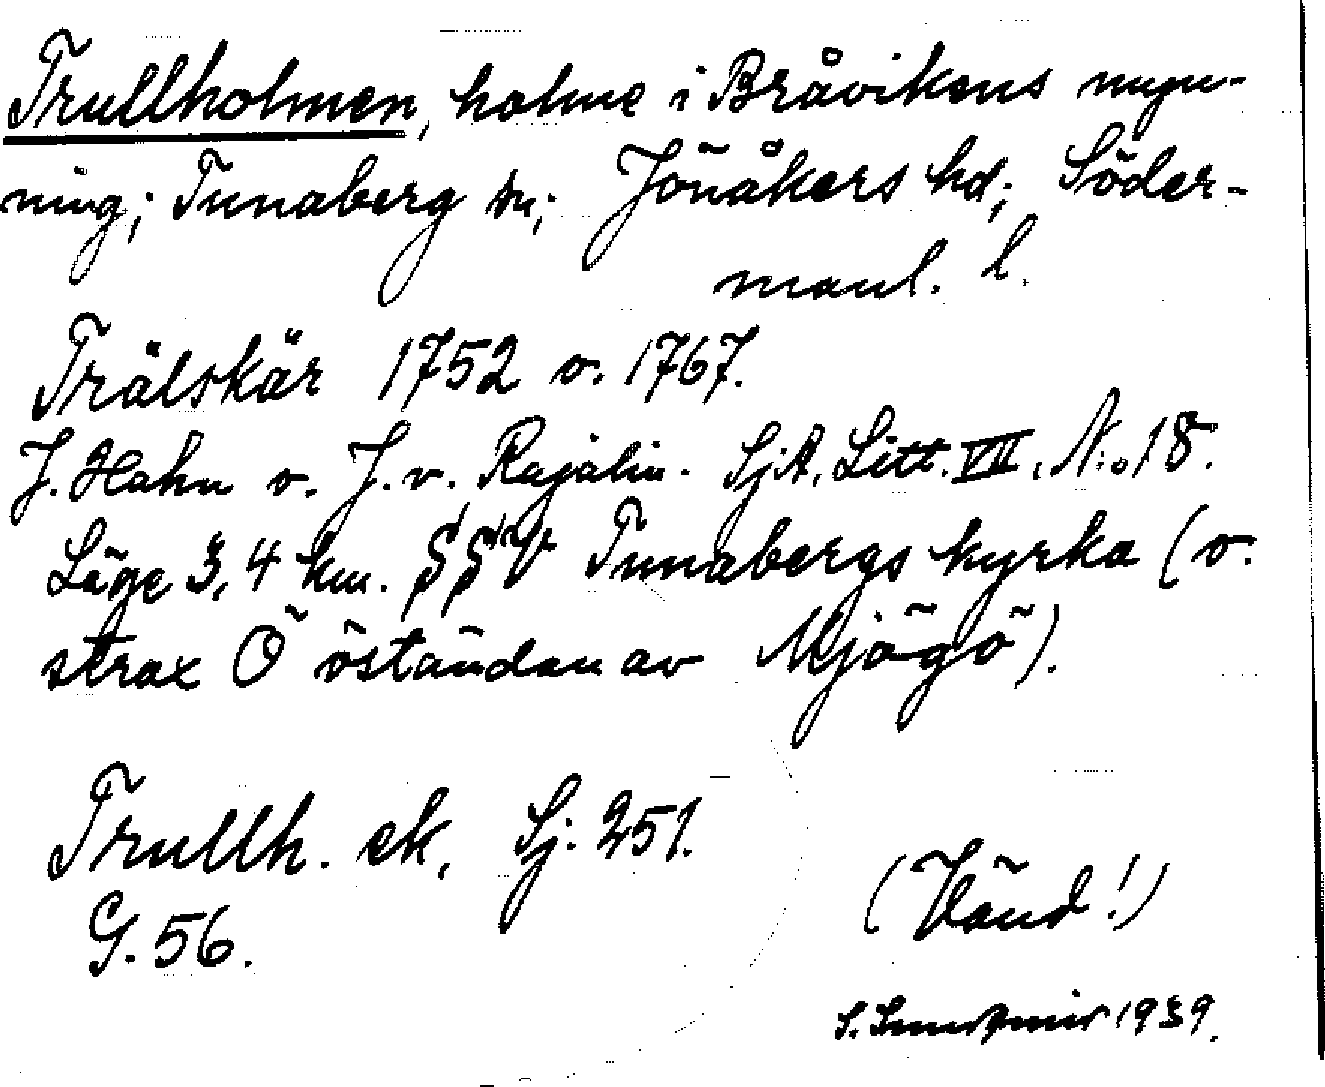 Trullholmen, holme i Bråvikens myn-
ning; Tunaberg sn; Jönåkers hd; Söder-
manl. l.
Trälskär 1752 o. 1767.
J. Hahn o. J. v. Rajalin. SjA. Litt. VII, N:o 18.
Läge 3,4 km. SSV Tunabergs kyrka (o.
strax Ö östanden av Mjögö).
Trullh. ek. Sj. 251.
G. 56.
(Vänd!)
S. 1939.